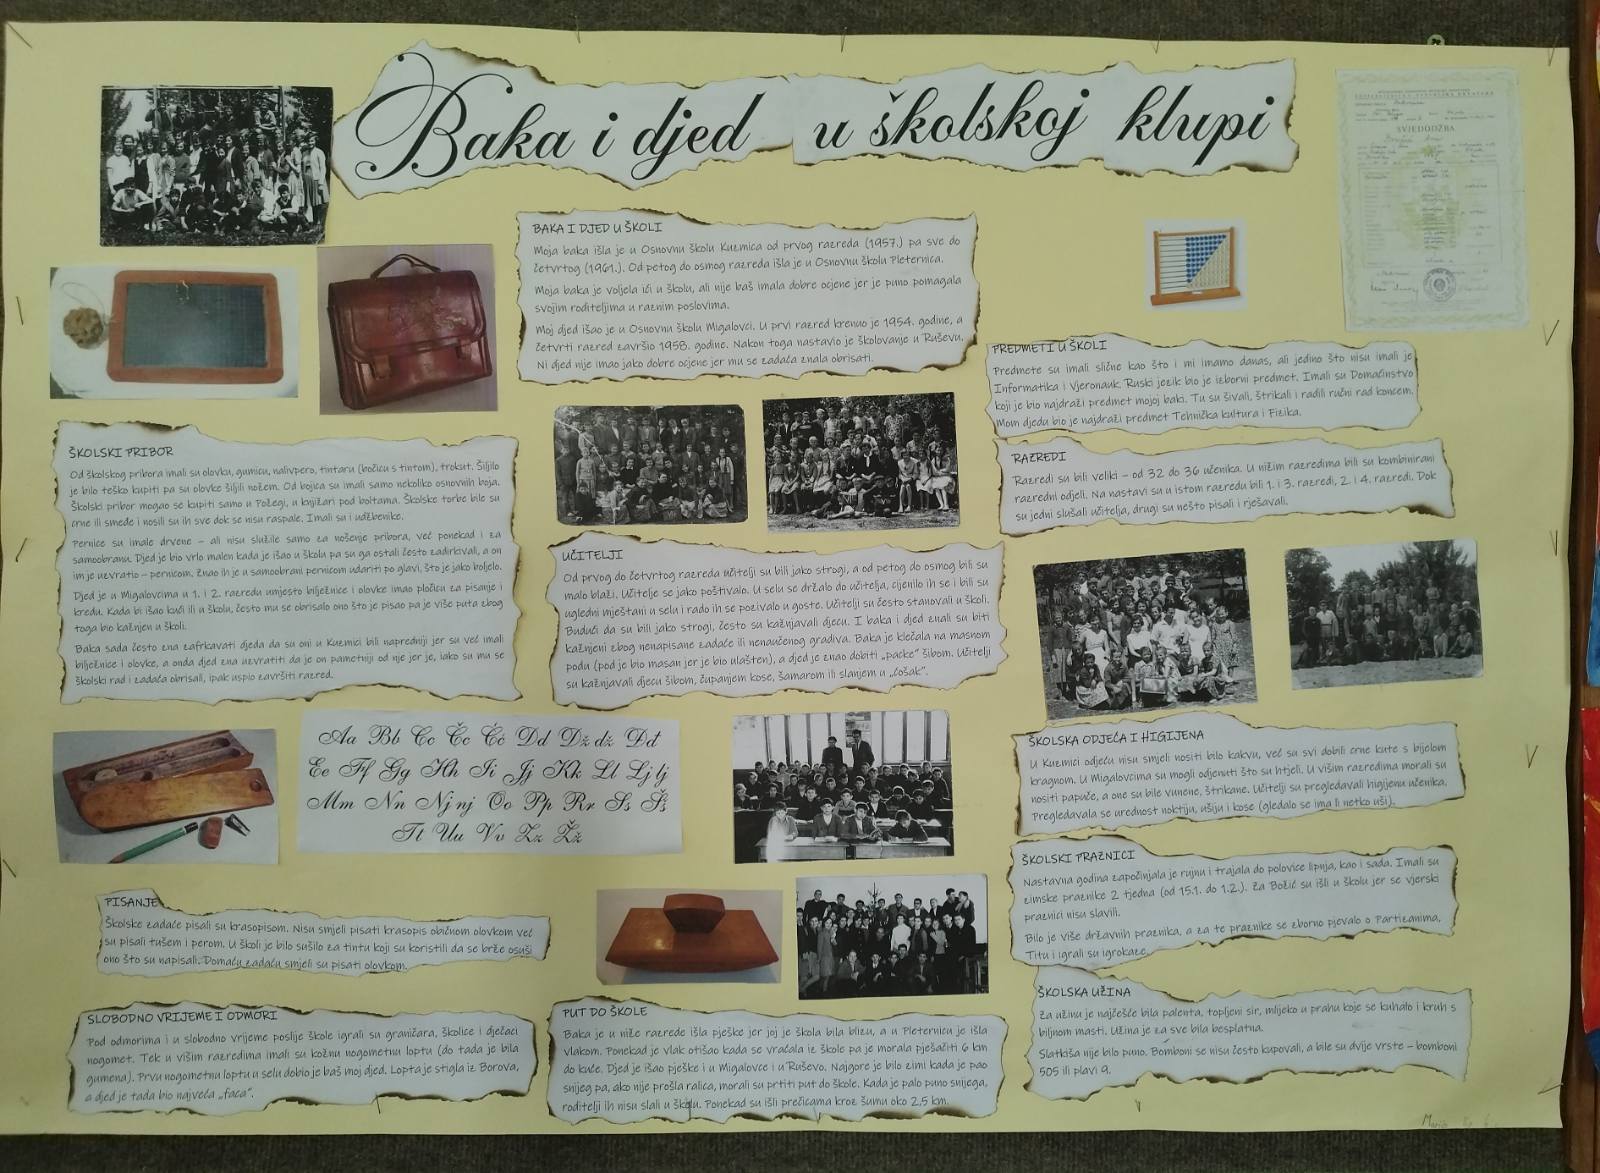 Baka i djed u školskoj klupi
SVJEDODŽBA
BAKA I DJED U ŠKOLI
Moja baka išla je u Osnovnu školu Kuzmica od prvog razreda (1957.) pa sve do
četvrtog (1961.). Od petog do osmog razreda išla je u Osnovnu školu Pleternica.
Moja baka je voljela ići u školu, ali nije baš imala dobre ocjene jer je puno pomagala
svojim roditeljima u raznim poslovima.
Moj djed išao je u Osnovnu školu Migalovci. U prvi razred krenuo je 1954. godine, a
četvrti razred završio 1958. godine. Nakon toga nastavio je školovanje u Ruševu.
Ni djed nije imao jako dobre ocjene jer mu se zadaća znala obrisati.
PREDMETI U ŠKOLI
Predmete su imali slične kao što i mi imamo danas, ali jedino što nisu imali je
Informatika i Vjeronauk. Ruski jezik bio je izborni predmet. Imali su Domaćinstvo
koji je bio najdraži predmet mojoj baki. Tu su šivali, štrikali i radili ručni rad koncem.
Mom djedu bio je najdraži predmet Tehnička kultura i Fizika.
ŠKOLSKI PRIBOR
Od školskog pribora imali su olovku, gumicu, nalivpero, tintaru (bočicu s tintom), trokut. Šiljilo
je bilo teško kupiti pa su olovke šiljili nožem. Od bojica su imali samo nekoliko osnovnih boja.
Školski pribor mogao se kupiti samo u Požegi, u knjižari pod boltama. Školske torbe bile su
crne ili smeđe i nosili su ih sve dok se nisu raspale. Imali su i udžbenike.
Pernice su imale drvene – ali nisu služile samo za nošenje pribora, već ponekad i za
samoobranu. Djed je bio vrlo malen kada je išao u školu pa su ga ostali često zadirkivali, a on
im je uzvratio – pernicom. Znao ih je u samoobrani pernicom udariti po glavi, što je jako boljelo.
Djed je u Migalovcima u 1. i 2. razredu umjesto bilježnice i olovke imao pločicu za pisanje i
kredu. Kada bi išao kući ili u školu, često mu se obrisalo ono što je pisao pa je više puta zbog
toga bio kažnjen u školi.
Baka sada često zna zafrkavati djeda da su oni u Kuzmici bili napredniji jer su već imali
bilježnice i olovke, a onda djed zna uzvratiti da je on pametniji od nje jer je, iako su mu se
školski rad i zadaća obrisali, ipak uspio završiti razred.
RAZREDI
Razredi su bili veliki – od 32 do 36 učenika. U nižim razredima bili su kombinirani
razredni odjeli. Na nastavi su u istom razredu bili 1. i 3. razredi, 2. i 4. razredi. Dok
su jedni slušali učitelja, drugi su nešto pisali i rješavali.
UČITELJI
Od prvog do četvrtog razreda učitelji su bili jako strogi, a od petog do osmog bili su
malo blaži. Učitelje se jako poštivalo. U selu se držalo do učitelja, cijenilo ih se i bili su
ugledni mještani u selu i rado ih se pozivalo u goste. Učitelji su često stanovali u školi.
Budući da su bili jako strogi, često su kažnjavali djecu. I baka i djed znali su biti
kažnjeni zbog nenapisane zadaće ili nenaučenog gradiva. Baka je klečala na masnom
podu (pod je bio masan jer je bio ulašten), a djed je znao dobiti „packe“ šibom. Učitelji
su kažnjavali djecu šibom, čupanjem kose, šamarom ili slanjem u „ćošak“.
Aa Bb Cc Čč Ćć Dd Dž dž Đđ
Ee Ff Gg Hh Ii Jj Kk Ll Lj lj
Mm Nn Nj nj Oo Pp Rr Ss Šš
Tt Uu Vv Zz Žž
ŠKOLSKA ODJEĆA I HIGIJENA
U Kuzmici odjeću nisu smjeli nositi bilo kakvu, već su svi dobili crne kute s bijelom
kragnom. U Migalovcima su mogli odjenuti što su htjeli. U višim razredima morali su
nositi papuče, a one su bile vunene, štrikane. Učitelji su pregledavali higijenu učenika.
Pregledavala se urednost noktiju, ušiju i kose (gledalo se ima li netko uši).
ŠKOLSKI PRAZNICI
Nastavna godina započinjala je rujnu i trajala do polovice lipnja, kao i sada. Imali su
zimske praznike 2 tjedna (od 15.1. do 1.2.). Za Božić su išli u školu jer se vjerski
praznici nisu slavili.
Bilo je više državnih praznika, a za te praznike se zborno pjevalo o Partizanima,
Titu i igrali su igrokaze.
PISANJE
Školske zadaće pisali su krasopisom. Nisu smjeli pisati krasopis običnom olovkom već
su pisali tušem i perom. U školi je bilo sušilo za tintu koji su koristili da se brže osuši
ono što su napisali. Domaću zadaću smjeli su pisati olovkom.
SLOBODNO VRIJEME I ODMORI
Pod odmorima i u slobodno vrijeme poslije škole igrali su graničara, školice i dječaci
nogomet. Tek u višim razredima imali su kožnu nogometnu loptu (do tada je bila
gumena). Prvu nogometnu loptu u selu dobio je baš moj djed. Lopta je stigla iz Borova,
a djed je tada bio najveća „faca“.
PUT DO ŠKOLE
Baka je u niže razrede išla pješke jer joj je škola bila blizu, a u Pleternicu je išla
vlakom. Ponekad je vlak otišao kada se vraćala iz škole pa je morala pješačiti 6 km
do kuće. Djed je išao pješke i u Migalovce i u Ruševo. Najgore je bilo zimi kada je pao
snijeg pa, ako nije prošla ralica, morali su prtiti put do škole. Kada je palo puno snijega,
roditelji ih nisu slali u školu. Ponekad su išli prečicama kroz šumu oko 2,5 km.
ŠKOLSKA UŽINA
Za užinu je najčešće bila palenta, topljeni sir, mlijeko u prahu koje se kuhalo i kruh s
biljnom masti. Užina je za sve bila besplatna.
Slatkiša nije bilo puno. Bomboni se nisu često kupovali, a bile su dvije vrste – bomboni
505 ili plavi 9.